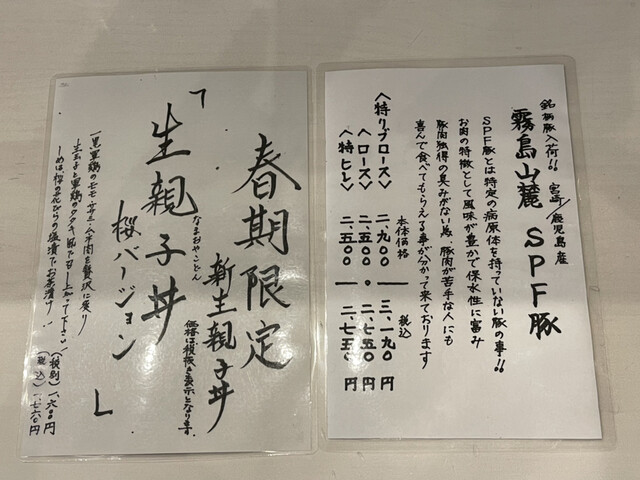 銘柄豚入荷!! 宮崎/鹿児島産
霧島山麓 SPF豚
SPF豚とは特定の病原体を持っていない豚の事!!
お肉の特徴として風味が豊かで保水性に富み
豚肉独得の臭みがない為、豚肉が苦手な人にも
喜んで食べてもらえる事が分かって来ております
本体価格 税込
〈特リブロース〉 二、九〇〇 ― 三、一九〇円
〈ロース〉 二、五〇〇 ・ 二、七五〇円
〈特ヒレ〉 二、五〇〇 ― 二、七五〇円
春期限定
新生親子丼
価格は税抜き表示となります。
なまおやこどん
「生親子丼
桜バージョン」
一黒軍鶏のモモ・ササミ・ムネ肉を贅沢に
生玉子と軍鶏のタタキ風で召し上がって下さい
しめは、桜の花びらの塩漬でお茶漬け
(税別) 一、六〇〇円
(税込) 一、七六〇円